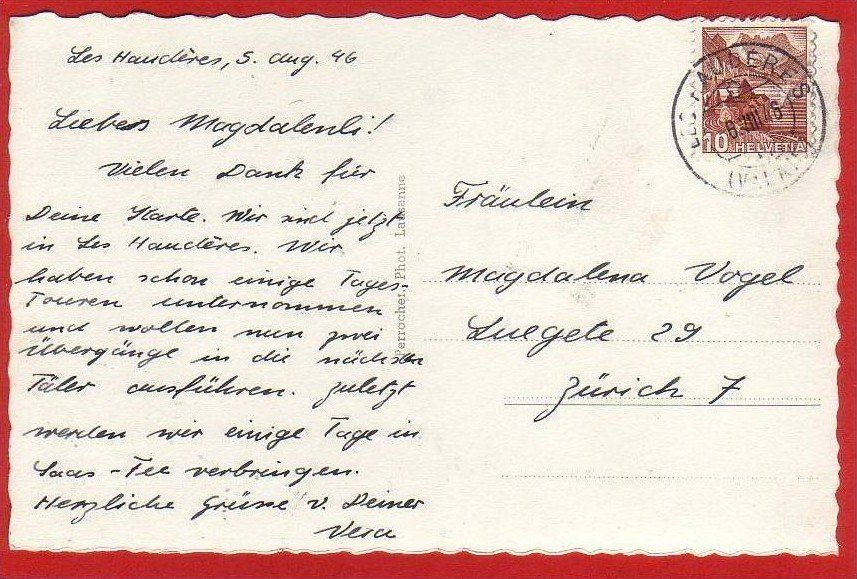 Les Haudères, 5. Aug. 46
Liebes Magdalenli!
Vielen Dank für
Deine Karte. Wir sind jetzt
in Les Haudères. Wir
haben schon einige Tages-
Touren unternommen
und wollen nun zwei
Übergänge in die nächsten
Täler ausführen. Zuletzt
werden wir einige Tage in
Saas-Fee verbringen.
Herzliche Grüsse v. Deiner
Vera
Perrochet, Phot. Lausanne
LES HAUDERES
6.VIII.46
10 HELVETIA
Fräulein
Magdalena Vogel
Luegete 29
Zürich 7